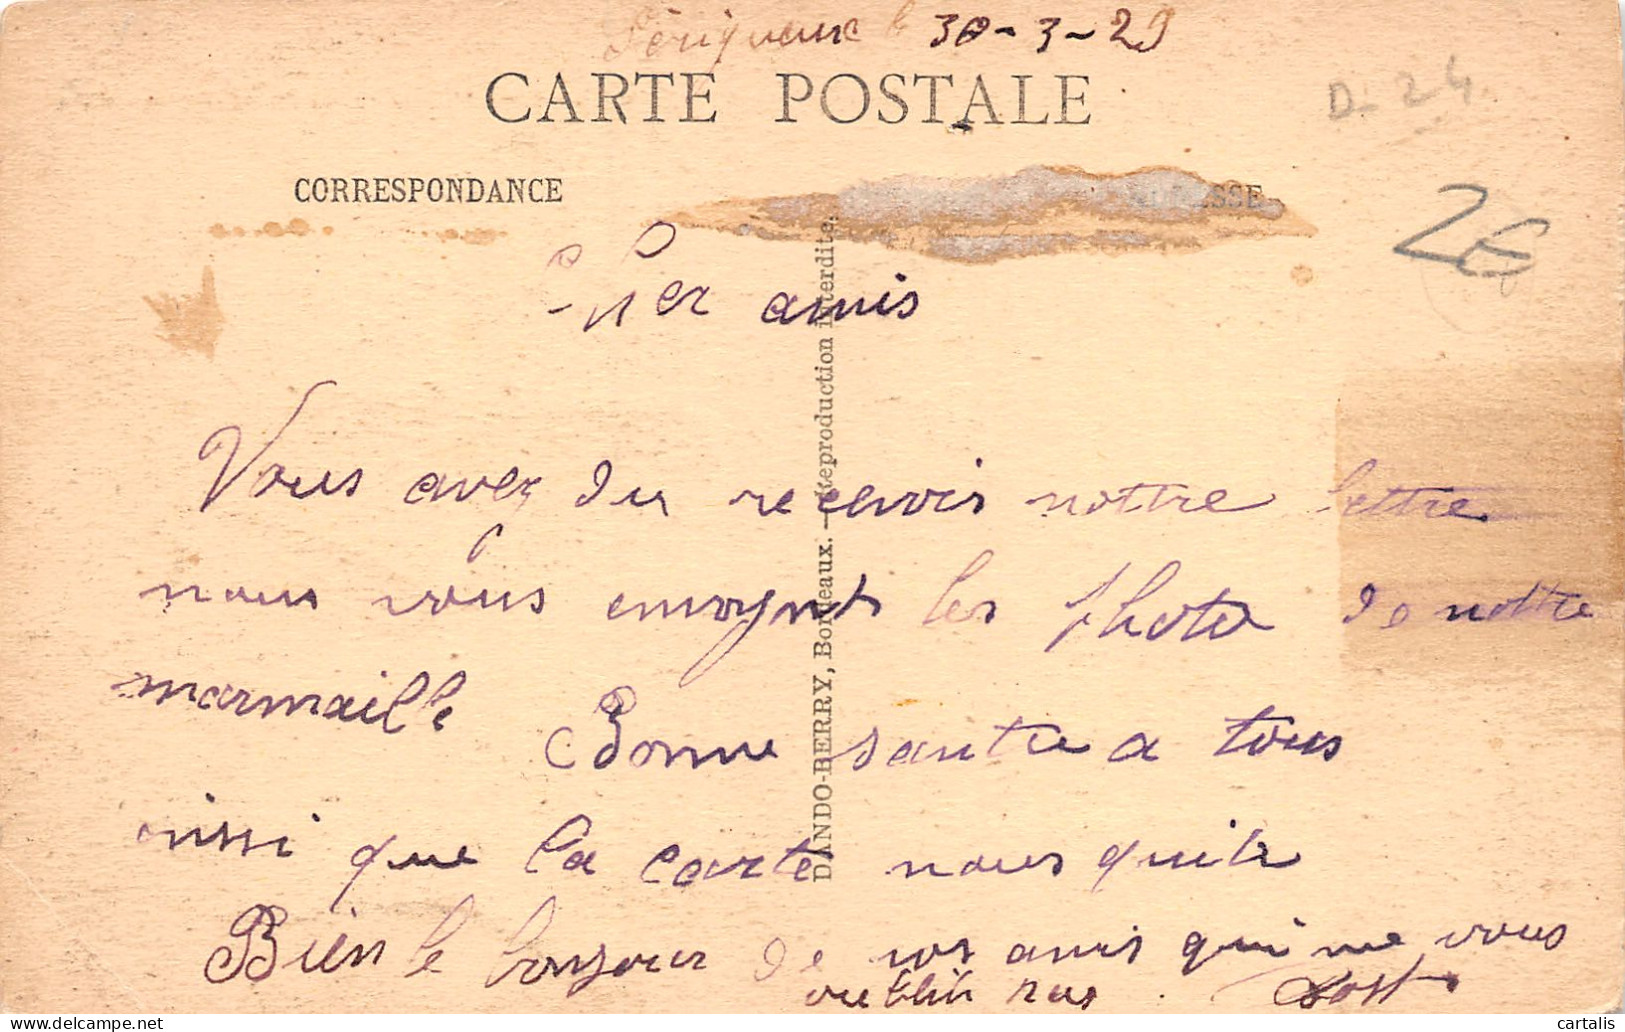 Périgueux le 30-3-29
CARTE POSTALE
D-24
CORRESPONDANCE
2€
Cher amis
Vous avez du recevoir nottre lettre
nous vous envoynts les photo de nottre
marmaille Bonne santre a tous
aissi que la carte nous quite
Bien le bonjour de vos amis qui ne vous
oublie pas.
DANDO-BERRY, Bordeaux. — Reproduction interdite.
cartalis